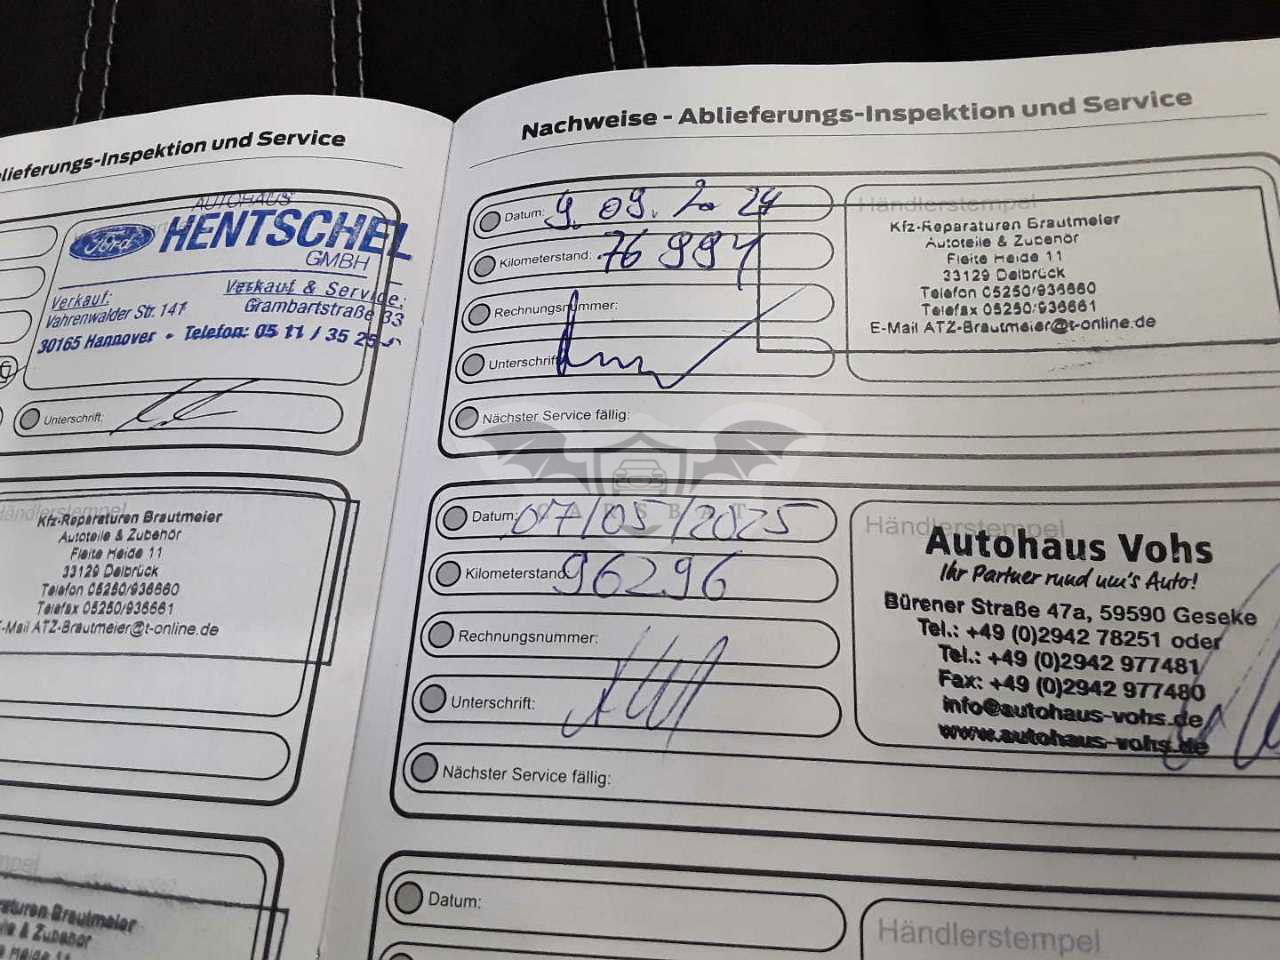 blieferungs-Inspektion und Service
AUTOHAUS
Ford
HENTSCHEL
GMBH
Verkauf:
Vahrenwalder Str. 141
Verkauf & Service:
Grambartstraße 33
30165 Hannover • Telefon: 05 11 / 35 25
Unterschrift:
Händlerstempel
Kfz-Reparaturen Brautmeier
Autoteile & Zubehör
Fleite Heide 11
33129 Delbrück
Telefon 05250/936660
Telefax 05250/936661
E-Mail ATZ-Brautmeier@t-online.de
mpel
araturen Brautmeier
ile & Zubehör
te Heide 11
Nachweise - Ablieferungs-Inspektion und Service
Datum: 9. 09. 2024
Kilometerstand: 76 994
Rechnungsnummer:
Unterschrift
Nächster Service fällig:
Händlerstempel
Kfz-Reparaturen Brautmeier
Autoteile & Zubehör
Fleite Heide 11
33129 Delbrück
Telefon 05250/936660
Telefax 05250/936661
E-Mail ATZ-Brautmeier@t-online.de
CARSBAT
Datum: 07/05/2025
Kilometerstand: 96296
Rechnungsnummer:
Unterschrift:
Nächster Service fällig:
Händlerstempel
Autohaus Vohs
Ihr Partner rund um's Auto!
Bürener Straße 47a, 59590 Geseke
Tel.: +49 (0)2942 78251 oder
Tel.: +49 (0)2942 977481
Fax: +49 (0)2942 977480
info@autohaus-vohs.de
www.autohaus-vohs.de
Datum:
Händlerstempel